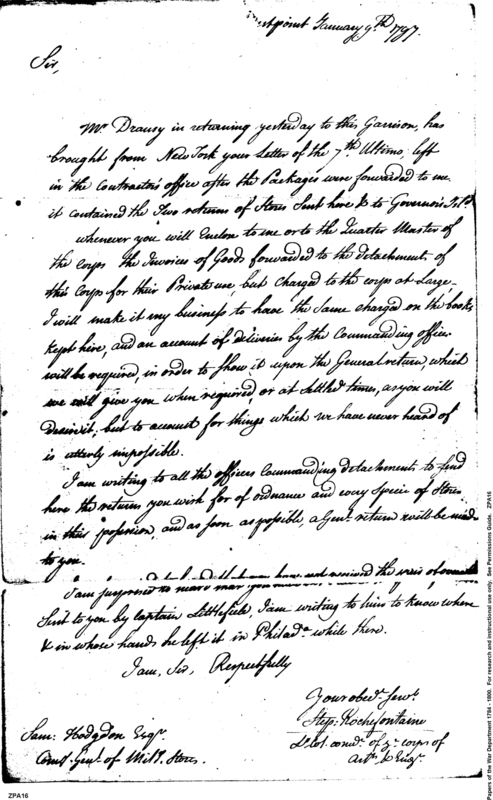 Westpoint January 9th 1797.
Sir,
Mr Drausy in returning yesterday to this Garrison, has
brought from New York your Letter of the 7th Ultimo, left
in the Contractors office after the Packages were forwarded to me
it contained the Two returns of Stores Sent here & to Governor's Isld.
whenever you will Enclose to me or to the Quarter Master of
the corps the Invoices of Goods forwarded to the detachments of
this Corps for their Private use, but charged to the corps at Large—
I will make it my business to have the Same charged on the books
kept here, and an account of deliveries by the Commanding officer
will be required, in order to show it upon the General return, which
we will give you when required or at Settled times, as you will
desire it; but to account for things which we have never heard of
is utterly impossible.
I am writing to all the officers Commanding detachments to send
here the returns you wish for of ordnance and every Specie of Stores
in their possession, and as soon as possible, a Genl. return will be made
to you.
I am surprised to
Sent to you by captain Littlefield, I am writing to him to know when
& in whose hands he left it in Philada. while there.
I am, Sir, Respectfully
Your obedt. Servt.
Step: Rochefontaine
Lt Col. comdt. of ye corps of
Arts. & Engrs.
Sam: Hodgdon Esqr.
Comt. Genl. of Milt. Stores.
ZPA16
Papers of the War Department 1784 - 1800. For research and instructional use only. See Permissions Guide. ZPA16